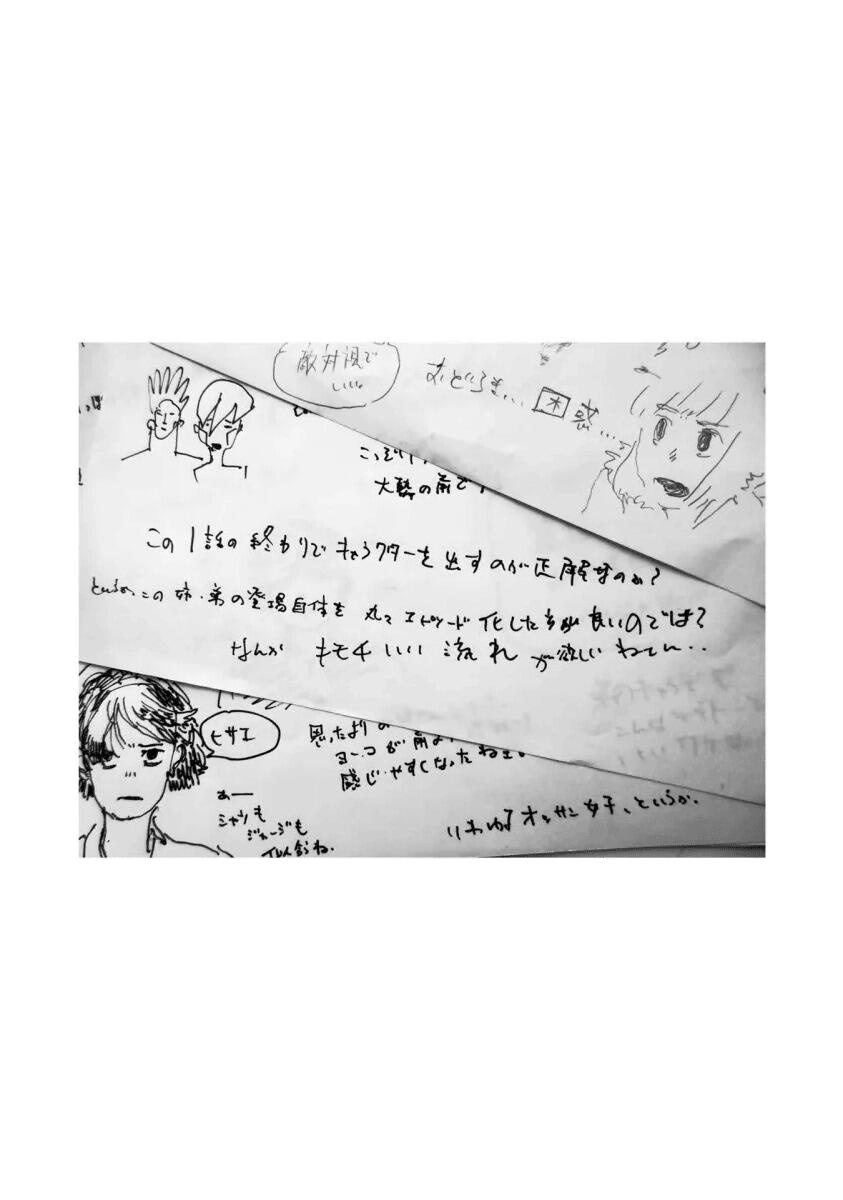 敵対視で
いいね
おどろき...困惑...
大勢の前で
この1話の終わりでキャラクターを出すのが正解なのか?
というかこの姉・弟の登場自体を丸々エピソード化した方が良いのでは?
なんかキモチいい流れが欲しいねてん..
ヒサエ
思ったより
ヨーコが前
感じやすくなったねぇ。
あー
シャツも
ジャージも
似合うね.
いわゆるオッサン女子、というか.